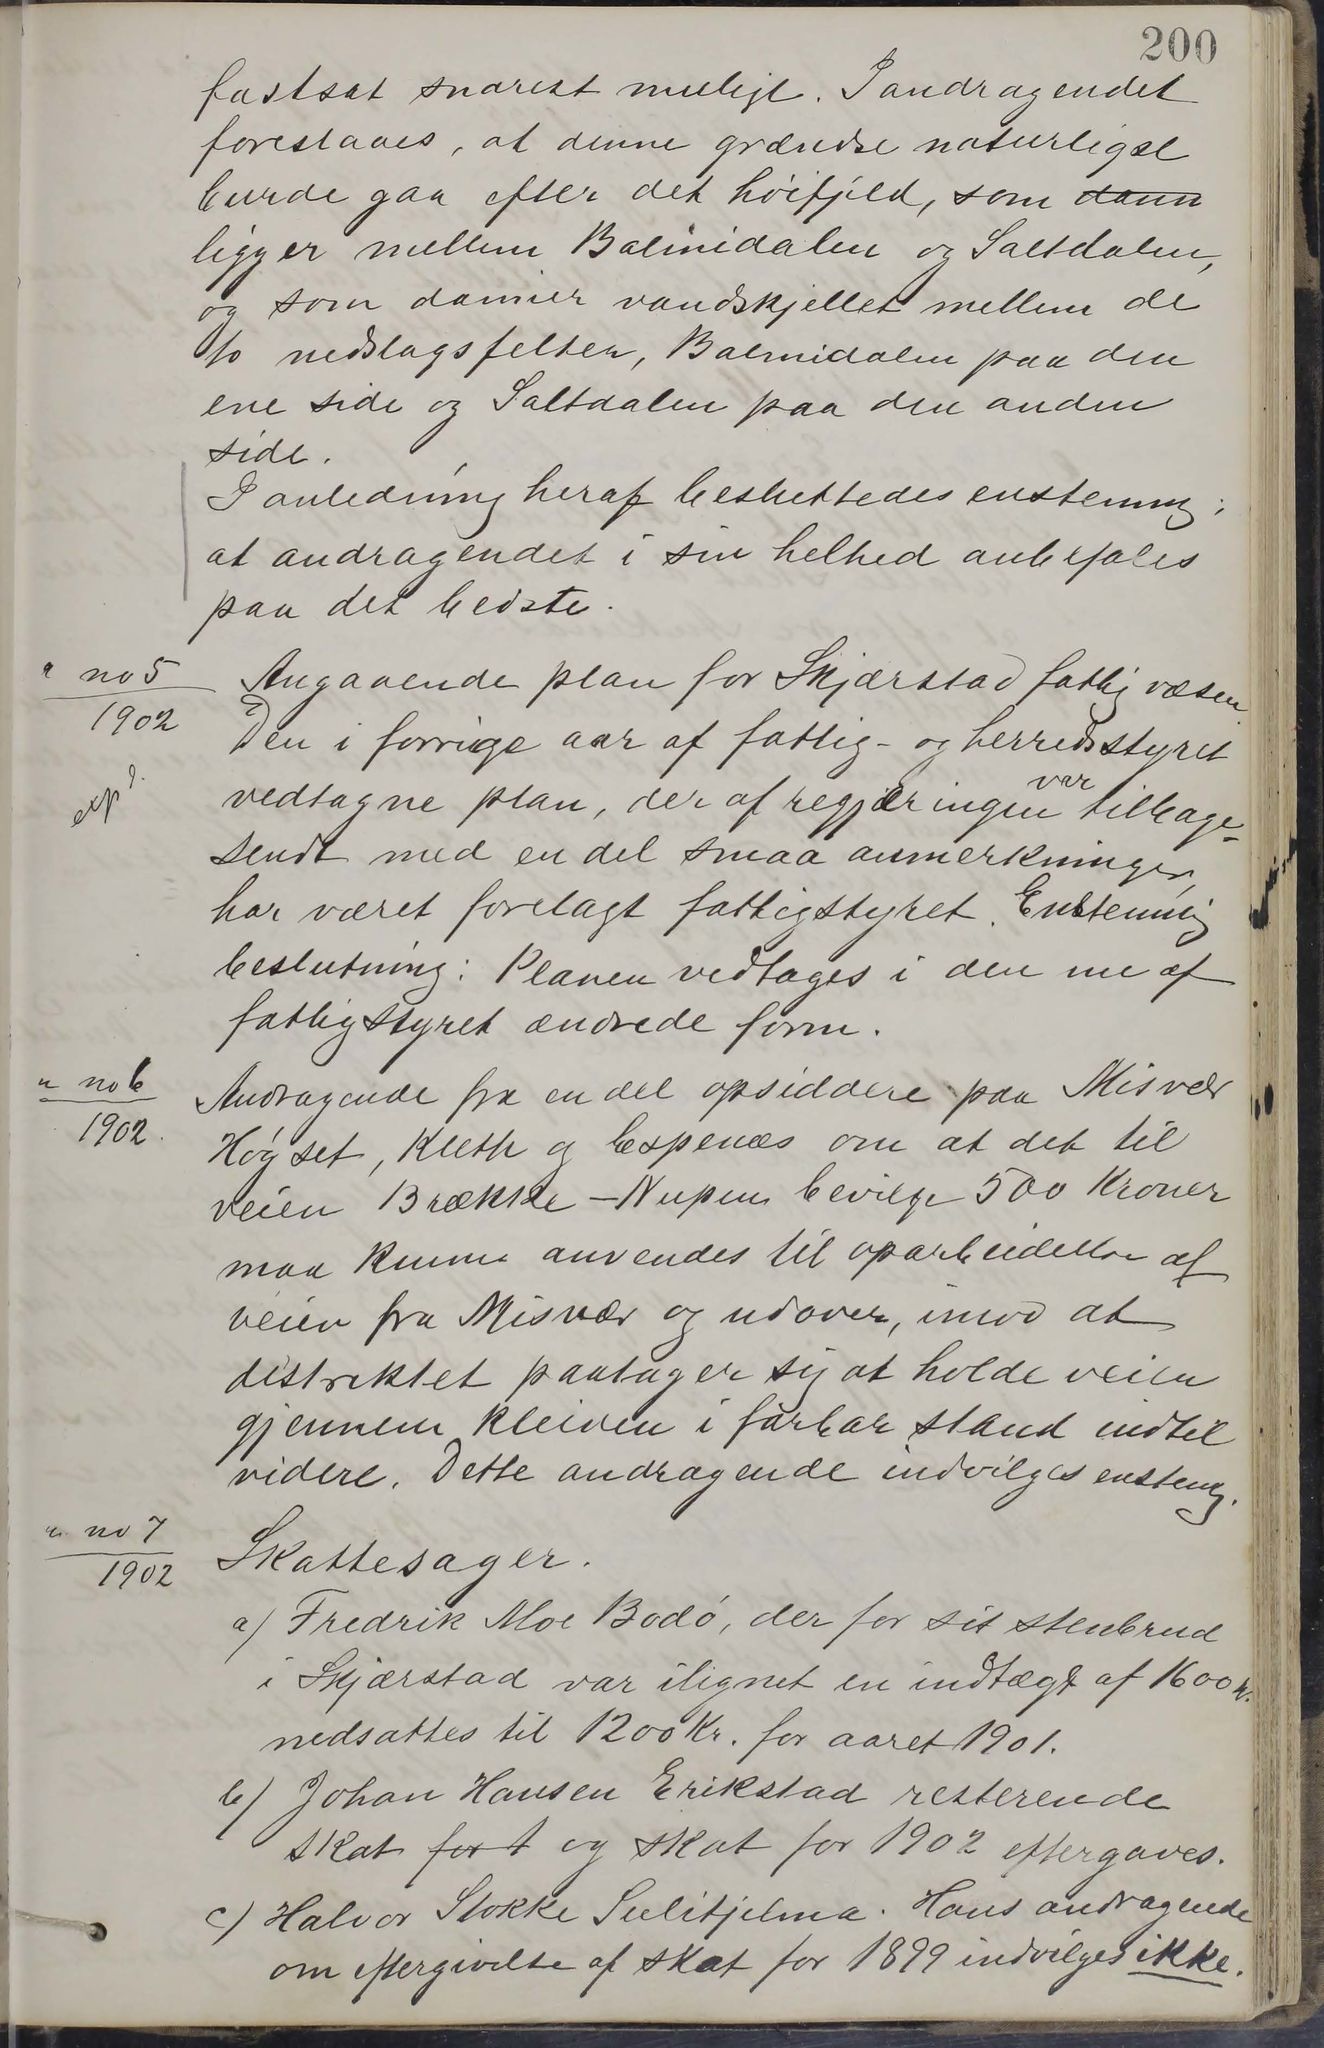 200
fastsat snarest muligt. I andragendet
foreslaaes, at denne grændse naturligst
burde gaa efter det höifjeld, som dann
ligger mellem Balmidalen og Saltdalen,
og som danner vandskjellet mellem de
to nedslagsfelter, Balmidalen paa den
ene side og Saltdalen paa den anden
side.
I anledning heraf besluttedes enstemmig;
at andragendet i sin helhed anbefales
paa det bedste.
" no 5
1902
expd.
Angaaende plan for Skjærstad fattigvæsen.
Den i forrige aar af fattig- og herredsstyret
vedtagne plan, der af regjæringen var tilbage-
sendt med en del smaa anmerkninger,
har været forelagt fattigstyret. Enstemmig
beslutning: Planen vedtages i den nu af
fattigstyret ændrede form.
" no 6
1902.
Andragende fra en del opsiddere paa Misvær
Høgset, Kleth og Espenæs om at det til
veien Brække - Nupen bevilge 500 Kroner
maa kunne anvendes til oparbeidelse af
veien fra Misvær og udover, imod at
distriktet paatager sig at holde veien
gjennem Kleiven i farbar stand indtil
videre. Dette andragende indvilges enstemg.
" no 7
1902
Skattesager.
a) Fredrik Moe Bodö, der for sit stenbrud
i Skjærstad var ilignet en indtægt af 1600 kr.
nedsattes til 1200 Kr. for aaret 1901.
b) Johan Hansen Erikstad resterende
skat for 1 og skat for 1902 eftergaves.
c) Halvor Stokke Sulitjelma. Hans andragende
om eftergivelse af skat for 1899 indvilges ikke.